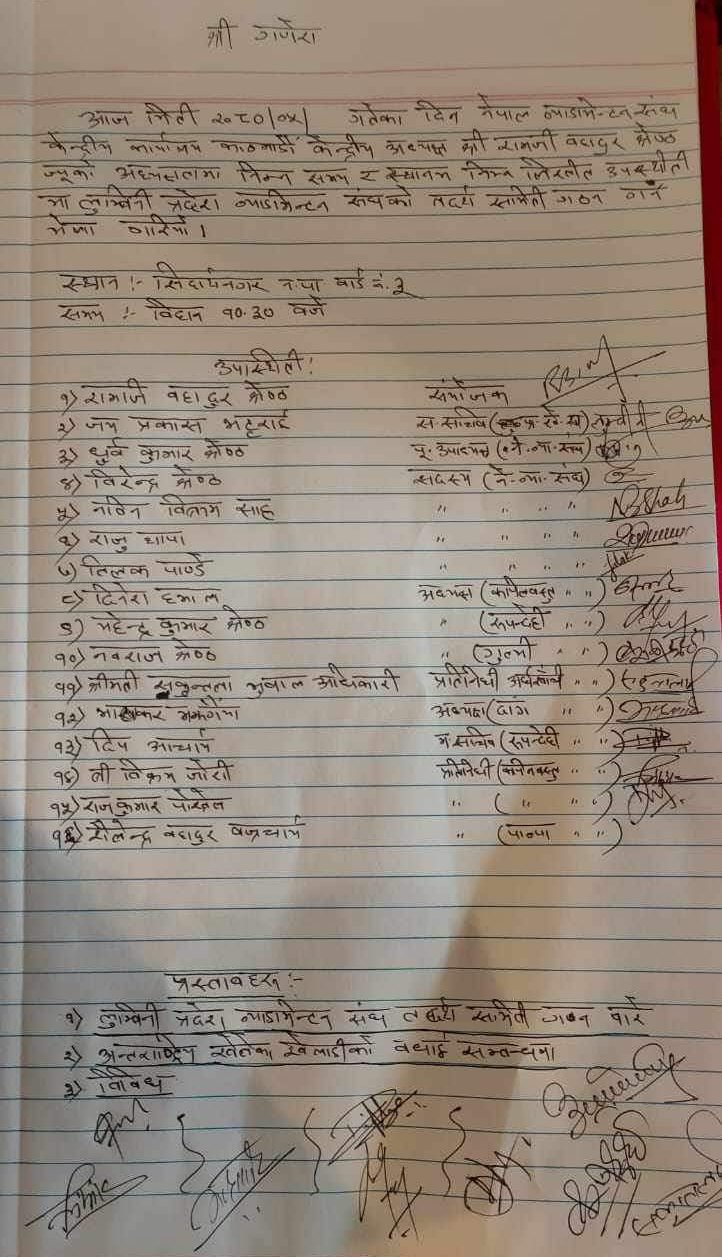 श्री गणेश
आज मिती २०८०/०४/ गतेका दिन नेपाल ब्याडमिन्टन संघ
केन्द्रीय कार्यालय काठमाडौं केन्द्रीय अध्यक्ष श्री रामजी बहादुर श्रेष्ठ
ज्यूको अध्यक्षतामा निम्न समय र स्थानमा निम्न लिखीत उपस्थीती
मा लुम्बिनी प्रदेश ब्याडमिन्टन संघको तदर्थ समिती गठन गर्न
भेला गरियो।
स्थान :- सिद्धार्थनगर न.पा वार्ड नं. ३
समय :- विहान १०.३० बजे
उपस्थिती :
१) रामजि बहादुर श्रेष्ठ संयोजक
२) जय प्रकास भट्टराई स.सचिव ( लुम्वीनी
३) ध्रुर्व कुमार श्रेष्ठ पू. उपाध्यक्ष (ने.ब्या.संघ)
४) विरेन्द्र श्रेष्ठ सदस्य (ने.ब्या.संघ)
५) नविन विक्रम साह " " " " NBShah
६) राजु थापा " " " "
७) तिलक पाण्डे " " " "
८) दिनेश हमाल अध्यक्ष (कपिलवस्तु " ")
९) महेन्द्र कुमार श्रेष्ठ " (रूपन्देही " ")
१०) नवराज श्रेष्ठ " (गुल्मी " ")
११) श्रीमती सकुन्तला भुवाल अधिकारी प्रतिनिधी अर्घाखाँची " ")
१२) भास्कर मर्कगैया अध्यक्ष (दाग " ")
१३) दिप आचार्य म.सचिव (रूपन्देही " ")
१४) वी विक्रम जोशी प्रतिनिधी (कपिलवस्तु " ")
१५) राजकुमार पोखेल " ( " " ")
१६) शैलेन्द्र बहादुर बज्रचार्य " (पाल्पा " ")
प्रस्तावहरू :-
१) लुम्बिनी प्रदेश ब्याडमिन्टन संघ तदर्थ समिती गठन बारे
२) अन्तराष्ट्रिय खेलेका खेलाडीको बधाई सम्वन्धमा
३) विविध